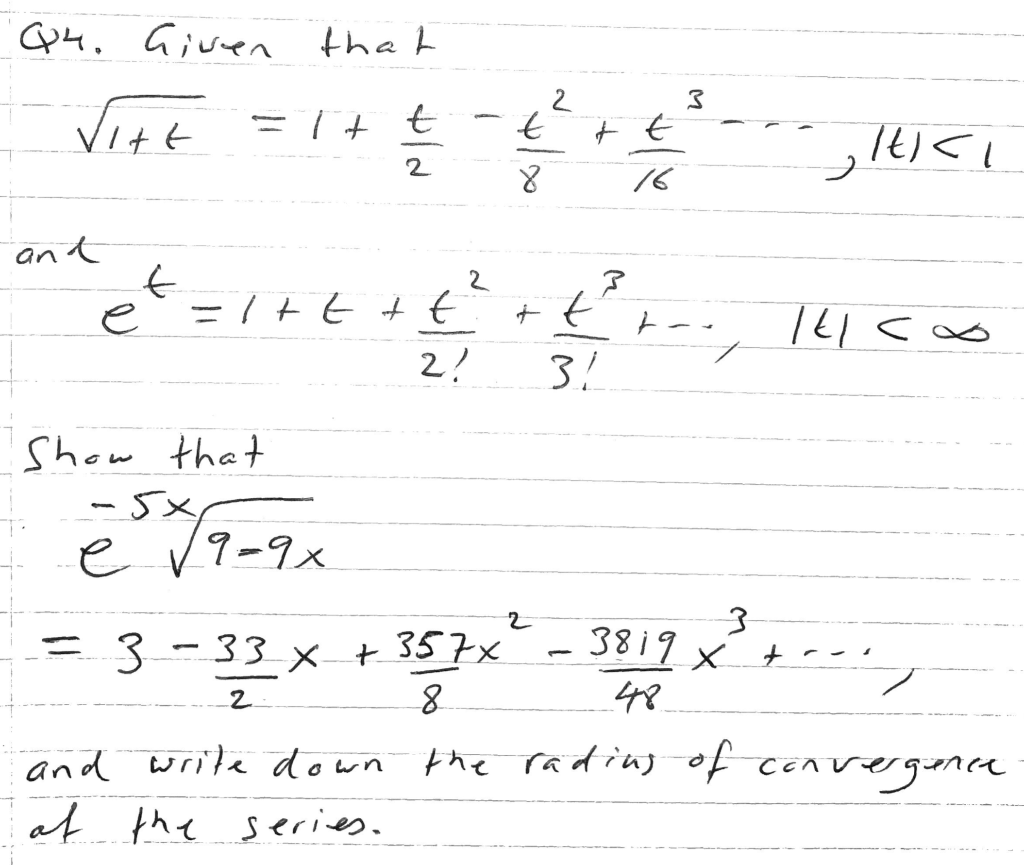 Q4. Given that
√(1+t) = 1 + t/2 - t²/8 + t³/16 - - - -, |t| < 1
and
e^t = 1 + t + t²/2! + t³/3! + - - -, |t| < ∞
Show that
e^(-5x) √(9-9x)
= 3 - 33/2 x + 357x²/8 - 3819/48 x³ + - - - -,
and write down the radius of convergence
of the series.